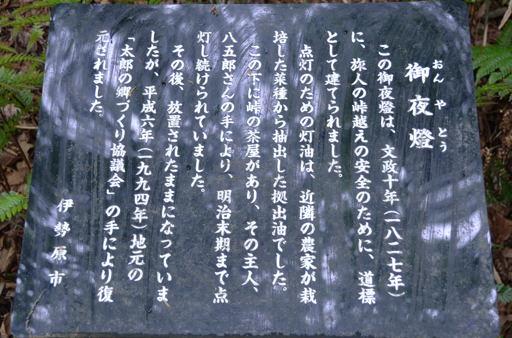 御夜燈
おんやとう
この御夜燈は、文政十年（一八二七年）
に、旅人の峠越えの安全のために、道標
として建てられました。
点灯のための灯油は、近隣の農家が栽
培した菜種から抽出した拠出油でした。
この下に峠の茶屋があり、その主人、
八五郎さんの手により、明治末期まで点
灯し続けられていました。
その後、放置されたままになっていま
したが、平成六年（一九九四年）地元の
「太郎の郷づくり協議会」の手により復
元されました。
伊勢原市